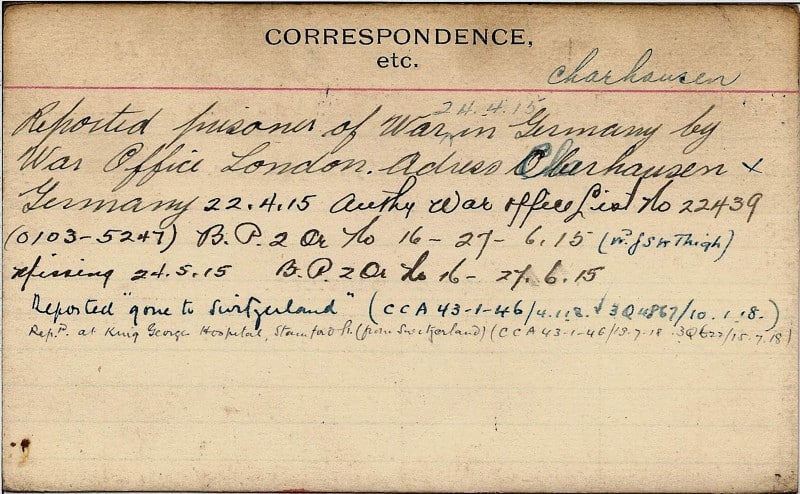 CORRESPONDENCE,
etc.
Charhausen
24.4.15
Reported prisoner of War in Germany by
War Office London. Adress Oberhausen x
Germany 22.4.15 Authy War Office List No 22439
(0103-5247) B.P. 2 Or No 16-27-6.15 (W. GSW Thigh)
Missing 24.5.15 B.P. 2 Or No 16-27.6.15
Reported "gone to Switzerland" (CCA 43-1-46/4.1.18. 3Q4867/10.1.18.)
Rep.P. at King George Hospital, Stamford St. (from Switzerland) (CCA 43-1-46/ 3Q /15.7.18)